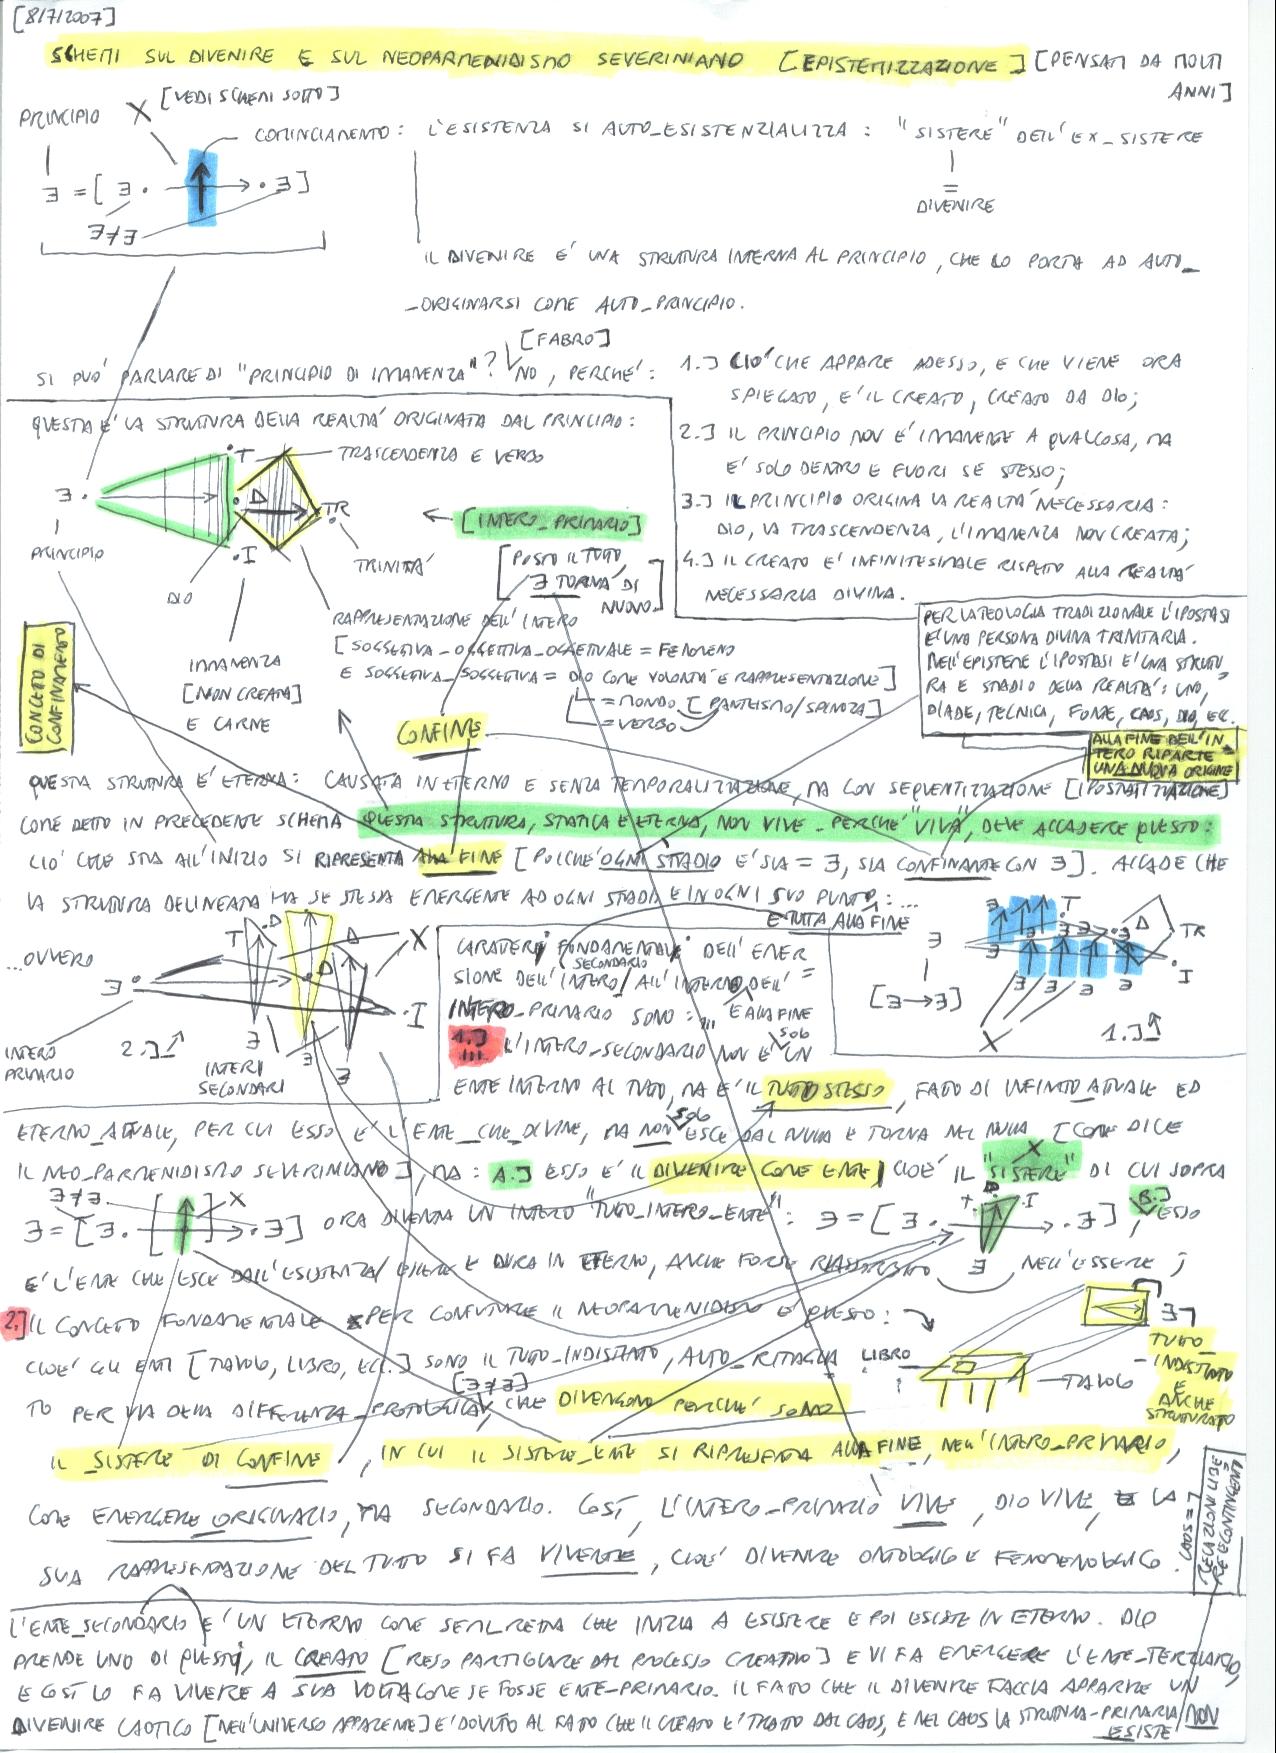 [8/7/2007]
SCHEMI SUL DIVENIRE E SUL NEOPARMENIDISMO SEVERINIANO [EPISTEMIZZAZIONE] [PENSATI DA MOLTI
ANNI]
PRINCIPIO X [VEDI SCHEMI SOTTO]
COMINCIAMENTO: L'ESISTENZA SI AUTO_ESISTENZIALIZZA: "SISTERE" DELL'EX_SISTERE
∃ = [∃ . → . ∃]
=
DIVENIRE
∃≠∃
IL DIVENIRE E' UNA STRUTTURA INTERNA AL PRINCIPIO, CHE LO PORTA AD AUTO_
_ORIGINARSI COME AUTO_PRINCIPIO.
[FABRO]
SI PUO' PARLARE DI "PRINCIPIO DI IMMANENZA"? NO, PERCHE':
1.] CIO' CHE APPARE ADESSO, E CHE VIENE ORA
SPIEGATO, E' IL CREATO, CREATO DA DIO;
2.] IL PRINCIPIO NON E' IMMANENTE A QUALCOSA, MA
E' SOLO DENTRO E FUORI SE STESSO;
3.] IL PRINCIPIO ORIGINA LA REALTA' NECESSARIA:
DIO, LA TRASCENDENZA, L'IMMANENZA NON CREATA;
4.] IL CREATO E' INFINITESIMALE RISPETTO ALLA REALTA'
NECESSARIA DIVINA.
QUESTA E' LA STRUTTURA DELLA REALTA' ORIGINATA DAL PRINCIPIO:
.T TRASCENDENZA E VERBO
∃ . . D TR
[INTERO_PRIMARIO]
PRINCIPIO
.I
TRINITA'
DIO
[POSTO IL TUTTO,
∃ TORNA DI
NUOVO.]
IMMANENZA
[NON CREATA]
E CARNE
RAPPRESENTAZIONE DELL'INTERO
[SOGGETTIVA_OGGETTIVA_OGGETTUALE = FENOMENO
E SOGGETTIVA_SOGGETTIVA = DIO COME VOLONTA' E RAPPRESENTAZIONE]
= MONDO [PANTEISMO/SPINOZA]
= VERBO
PER LA TEOLOGIA TRADIZIONALE L'IPOSTASI
E' UNA PERSONA DIVINA TRINITARIA.
NELL'EPISTEME L'IPOSTASI E' UNA STRUTTU_
RA E STADIO DELLA REALTA': UNO,
DIADE, TECNICA, FORME, CAOS, DIO, ECC.
ALLA FINE DELL'IN
TERO RIPARTE
UNA NUOVA ORIGINE
CONCETTO DI
CONFINAMENTO
CONFINE
QUESTA STRUTTURA E' ETERNA: CAUSATA IN ETERNO E SENZA TEMPORALIZZAZIONE, MA CON SEQUENTIZZAZIONE [IPOSTATIZZAZIONE]
COME DETTO IN PRECEDENTE SCHEMA QUESTA STRUTTURA, STATICA E ETERNA, NON VIVE_PERCHE' "VIVA", DEVE ACCADERE QUESTO:
CIO' CHE STA ALL'INIZIO SI RIPRESENTA ALLA FINE [POICHE' OGNI STADIO E' SIA = ∃, SIA CONFINANTE CON ∃]. ACCADE CHE
LA STRUTTURA DELINEATA HA SE STESSA EMERGENTE AD OGNI STADIO E IN OGNI SUO PUNTO: ...
E TUTTA ALLA FINE
...OVVERO
∃ . T .D D X .I
INTERO
PRIMARIO
2.]
INTERI
SECONDARI
∃ ∃ ∃
CARATTERI FONDAMENTALI DELL'EMER
SECONDARIO
SIONE DELL'INTERO/ALL'INTERNO DELL'=
INTERO_PRIMARIO SONO: ... E ALLA FINE
1.] L'INTERO_SECONDARIO NON E' SOLO UN
∃ ∃ .T D TR .I
[∃→∃]
X
1.]
ENTE INTERNO AL TUTTO, MA E' IL TUTTO STESSO, FATTO DI INFINITO_ATTUALE ED
ETERNO_ATTUALE, PER CUI ESSO E' L'ENTE_CHE_DIVIENE, MA NON SOLO ESCE DAL NULLA E TORNA NEL NULLA [COME DICE
IL NEO_PARMENIDISMO SEVERINIANO], MA: A.] ESSO E' IL DIVENIRE COME ENTE, CIOE' IL "SISTERE" DI CUI SOPRA
∃≠∃ X
∃ = [∃. [ → ] .∃] ORA DIVENTA UN INTERO "TUTTO_INTERO_ENTE": ∃ = [∃. → .∃], B.] ESSO
E' L'ENTE CHE ESCE DALL'ESISTENZA/ESSERE E DURA IN ETERNO, ANCHE FORSE RIASSORBITO NELL'ESSERE;
2.] IL CONCETTO FONDAMENTALE PER CONFUTARE IL NEOPARMENIDISMO E' QUESTO:
CIOE' GLI ENTI [TAVOLO, LIBRO, ECC.] SONO IL TUTTO_INDISTINTO, AUTO_RITAGLIA
[∃≠∃]
TO PER VIA DELLA DIFFERENZA_PROTOLOGICA, CHE DIVENGONO PERCHE' SONO
LIBRO
TAVOLO
∃
TUTTO
_INDISTINTO
E
ANCHE
STRUTTURATO
IL_SISTERE DI CONFINE, IN CUI IL SISTERE_ENTE SI RIPRESENTA ALLA FINE, NELL'INTERO_PRIMARIO,
COME EMERGERE ORIGINARIO, MA SECONDARIO. COSI', L'INTERO_PRIMARIO VIVE, DIO VIVE, LA
SUA RAPPRESENTAZIONE DEL TUTTO SI FA VIVENTE, CIOE' DIVENIRE ONTOLOGICO E FENOMENOLOGICO.
CAOS =
RELAZIONI LIBE
RE E CONTINGENTI
L'ENTE_SECONDARIO E' UN ETERNO COME SEMIRETTA CHE INIZIA A ESISTERE E POI ESISTE IN ETERNO. DIO
PRENDE UNO DI QUESTI, IL CREATO [RESO PARTICOLARE DAL PROCESSO CREATIVO] E VI FA EMERGERE L'ENTE_TERZIARIO,
E COSI' LO FA VIVERE A SUA VOLTA COME SE FOSSE ENTE_PRIMARIO. IL FATTO CHE IL DIVENIRE FACCIA APPARIRE UN
DIVENIRE CAOTICO [NELL'UNIVERSO APPARENTE] E' DOVUTO AL FATTO CHE IL CREATO E' TRATTO DAL CAOS, E NEL CAOS LA STRUTTURA_PRIMARIA NON
ESISTE